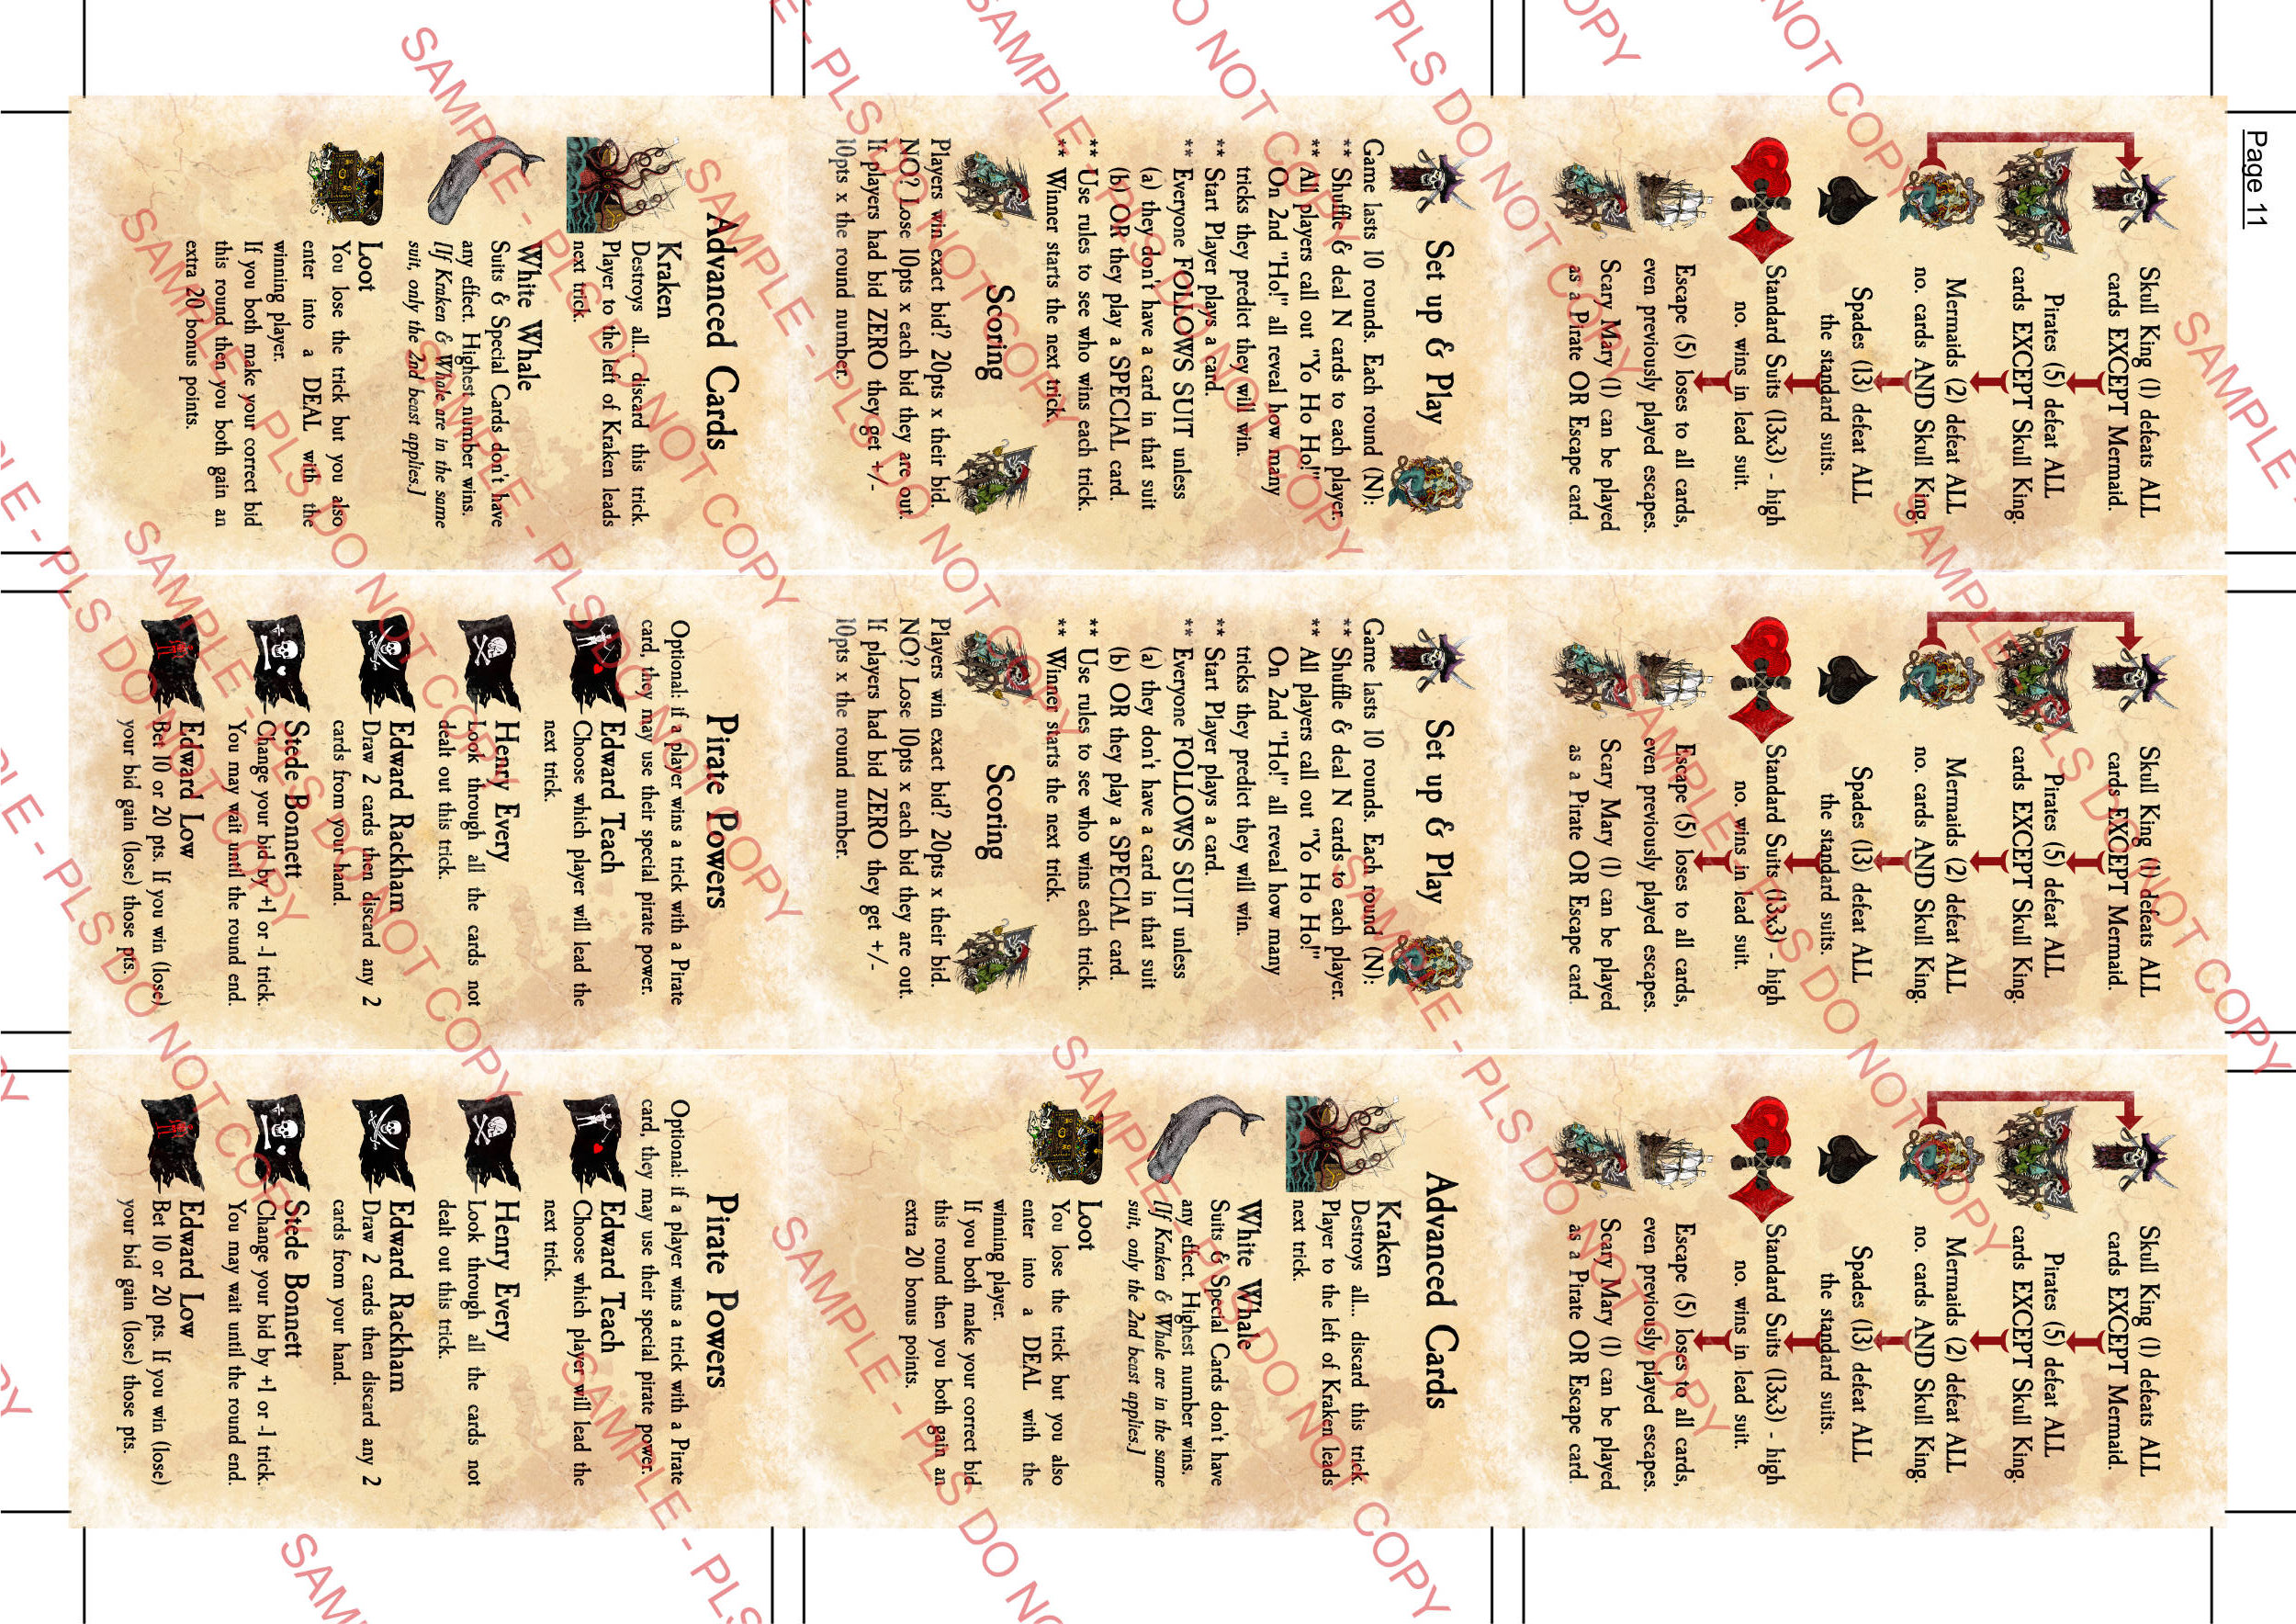 Page 11
Skull King (1) defeats ALL
cards EXCEPT Mermaid.
Pirates (5) defeat ALL
cards EXCEPT Skull King.
Mermaids (2) defeat ALL
no. cards AND Skull King.
Spades (13) defeat ALL
the standard suits.
Standard Suits (13x3) - high
no. wins in lead suit.
Escape (5) loses to all cards,
even previously played escapes.
Scary Mary (1) can be played
as a Pirate OR Escape card.
Skull King (1) defeats ALL
cards EXCEPT Mermaid.
Pirates (5) defeat ALL
cards EXCEPT Skull King.
Mermaids (2) defeat ALL
no. cards AND Skull King.
Spades (13) defeat ALL
the standard suits.
Standard Suits (13x3) - high
no. wins in lead suit.
Escape (5) loses to all cards,
even previously played escapes.
Scary Mary (1) can be played
as a Pirate OR Escape card.
Skull King (1) defeats ALL
cards EXCEPT Mermaid.
Pirates (5) defeat ALL
cards EXCEPT Skull King.
Mermaids (2) defeat ALL
no. cards AND Skull King.
Spades (13) defeat ALL
the standard suits.
Standard Suits (13x3) - high
no. wins in lead suit.
Escape (5) loses to all cards,
even previously played escapes.
Scary Mary (1) can be played
as a Pirate OR Escape card.
Set up & Play
Game lasts 10 rounds. Each round (N):
** Shuffle & deal N cards to each player.
** All players call out "Yo Ho Ho!"
On 2nd "Ho!" all reveal how many
tricks they predict they will win.
** Start Player plays a card.
** Everyone FOLLOWS SUIT unless
(a) they don't have a card in that suit
(b) OR they play a SPECIAL card.
** Use rules to see who wins each trick.
** Winner starts the next trick.
Scoring
Players win exact bid? 20pts x their bid.
NO? Lose 10pts x each bid they are out.
If players had bid ZERO they get +/-
10pts x the round number.
Set up & Play
Game lasts 10 rounds. Each round (N):
** Shuffle & deal N cards to each player.
** All players call out "Yo Ho Ho!"
On 2nd "Ho!" all reveal how many
tricks they predict they will win.
** Start Player plays a card.
** Everyone FOLLOWS SUIT unless
(a) they don't have a card in that suit
(b) OR they play a SPECIAL card.
** Use rules to see who wins each trick.
** Winner starts the next trick.
Scoring
Players win exact bid? 20pts x their bid.
NO? Lose 10pts x each bid they are out.
If players had bid ZERO they get +/-
10pts x the round number.
Advanced Cards
Kraken
Destroys all... discard this trick.
Player to the left of Kraken leads
next trick.
White Whale
Suits & Special Cards don't have
any effect. Highest number wins.
[If Kraken & Whale are in the same
suit, only the 2nd beast applies.]
Loot
You lose the trick but you also
enter into a DEAL with the
winning player.
If you both make your correct bid
this round then you both gain an
extra 20 bonus points.
Advanced Cards
Kraken
Destroys all... discard this trick.
Player to the left of Kraken leads
next trick.
White Whale
Suits & Special Cards don't have
any effect. Highest number wins.
[If Kraken & Whale are in the same
suit, only the 2nd beast applies.]
Loot
You lose the trick but you also
enter into a DEAL with the
winning player.
If you both make your correct bid
this round then you both gain an
extra 20 bonus points.
Pirate Powers
Optional: if a player wins a trick with a Pirate
card, they may use their special pirate power.
Edward Teach
Choose which player will lead the
next trick.
Henry Every
Look through all the cards not
dealt out this trick.
Edward Rackham
Draw 2 cards then discard any 2
cards from your hand.
Stede Bonnett
Change your bid by +1 or -1 trick.
You may wait until the round end.
Edward Low
Bet 10 or 20 pts. If you win (lose)
your bid gain (lose) those pts.
Pirate Powers
Optional: if a player wins a trick with a Pirate
card, they may use their special pirate power.
Edward Teach
Choose which player will lead the
next trick.
Henry Every
Look through all the cards not
dealt out this trick.
Edward Rackham
Draw 2 cards then discard any 2
cards from your hand.
Stede Bonnett
Change your bid by +1 or -1 trick.
You may wait until the round end.
Edward Low
Bet 10 or 20 pts. If you win (lose)
your bid gain (lose) those pts.
SAMPLE - PLS DO NOT COPY
SAMPLE - PLS DO NOT COPY
SAMPLE - PLS DO NOT COPY
SAMPLE - PLS DO NOT COPY
SAMPLE - PLS DO NOT COPY
SAMPLE - PLS DO NOT COPY